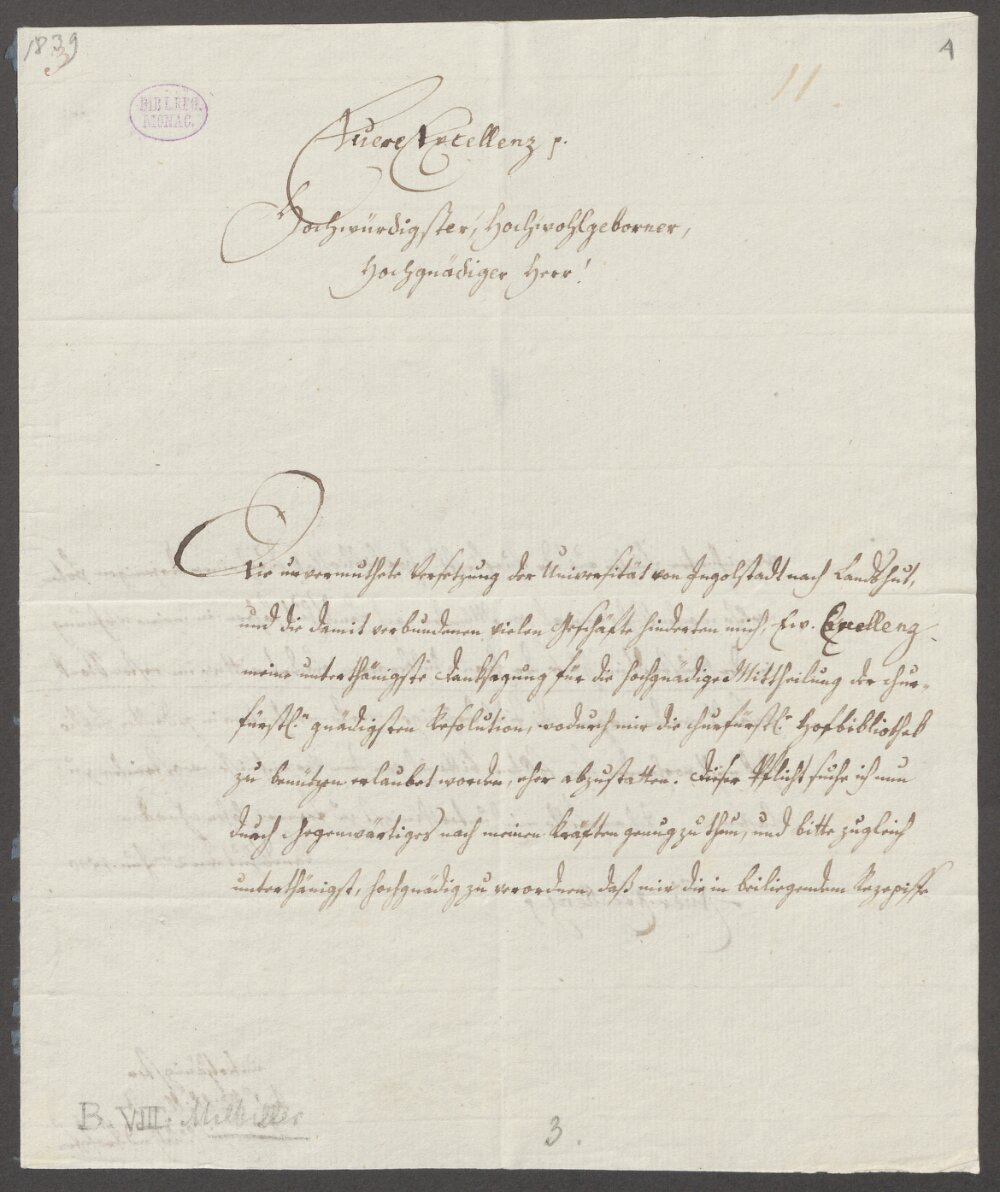 1839
3
A
11
BIBL. REG.
MONAC.
Euere Excellenz p.
Hochwürdigster, Hochwohlgeborner,
Hochgnädiger Herr!
Die unvermuthete Versetzung der Universität von Ingolstadt nach Landshut,
und die damit verbundenen vielen Geschäfte hinderten mich, Ew. Excellenz
meine unterthänigste Danksagung für die hochgnädige Mittheilung der chur-
fürstl. gnädigsten Resolution, wodurch mir die churfürstl. Hofbibliothek
zu benützen erlaubet worden, eher abzustatten. Dieser Pflicht suche ich nun
durch Gegenwärtiges nach meinen Kräften genug zu thun, und bitte zugleich
unterthänigst, hochgnädig zu verordnen, daß mir die in beiliegendem Rezepisse
B. VIII. Milbiller
3.